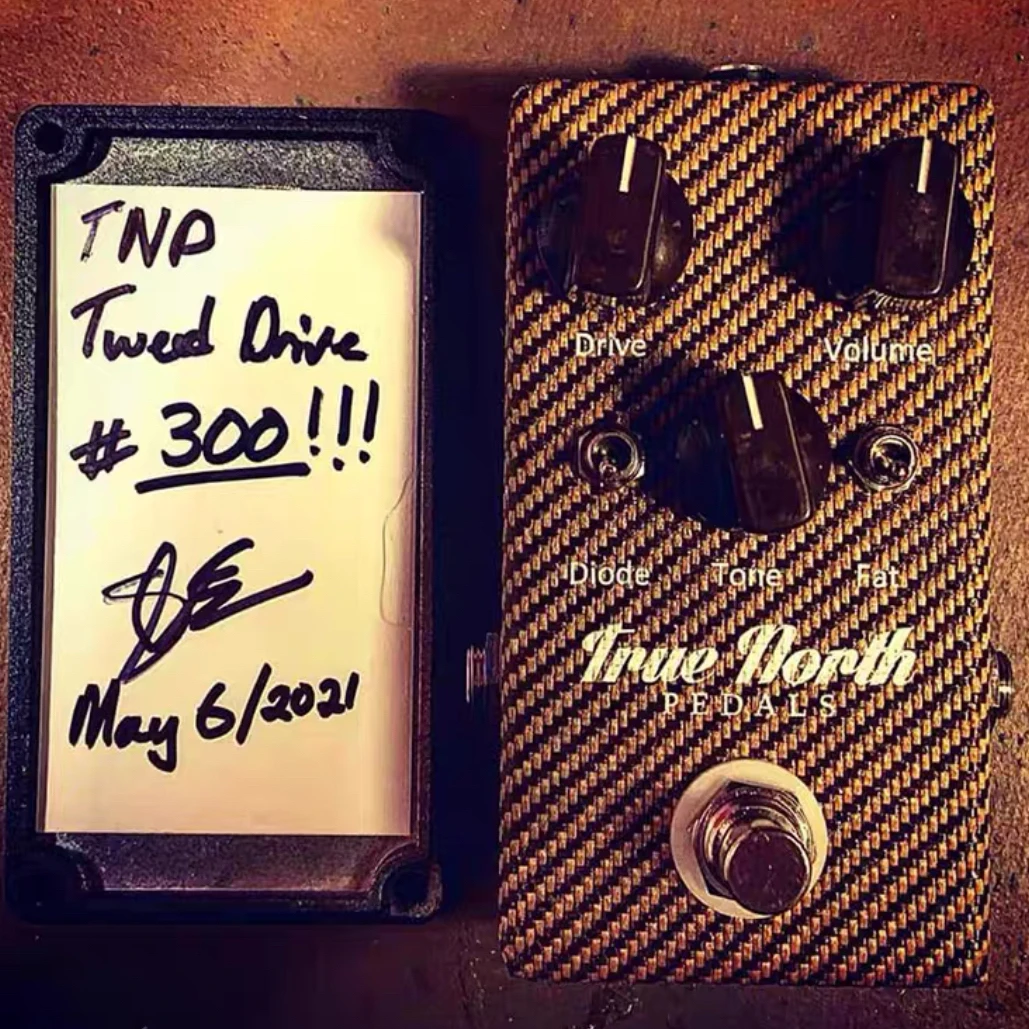 TNP
Tweed Drive
# 300!!!
May 6/2021
Drive Volume
Diode Tone Fat
True North
PEDALS